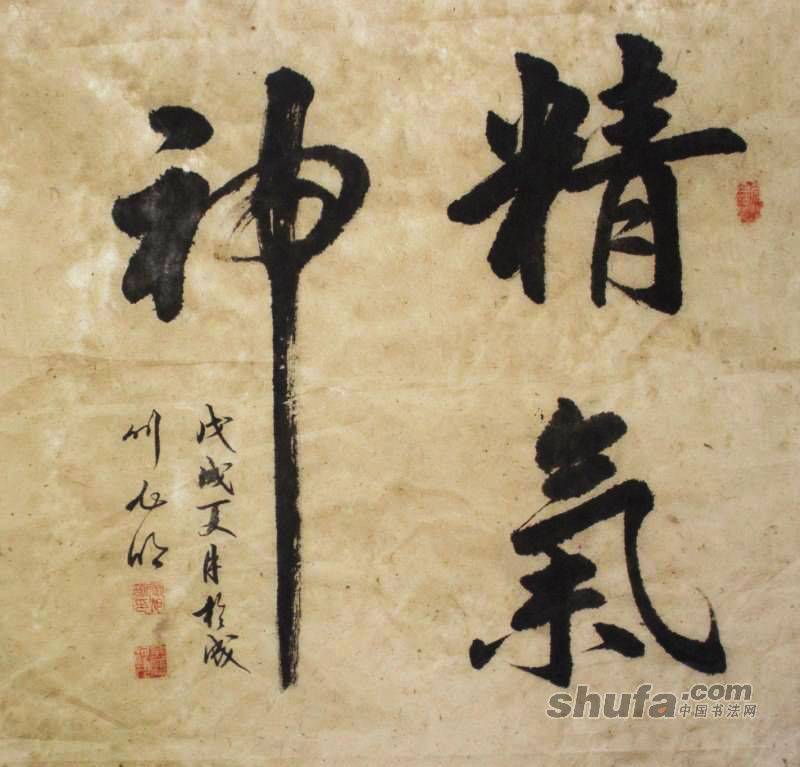 精氣
神
戊戌夏月於成
shufa.com
中国书法网